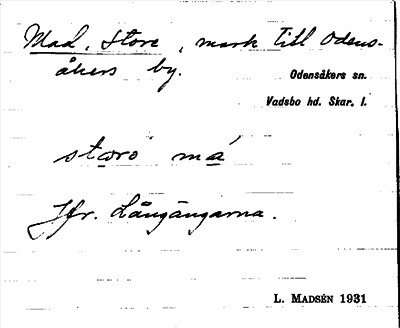 Mad, Store, mark till Odens-
åkers by.
Odensåkers sn.
Vadsbo hd. Skar. l.
storo má
Jfr. Långängarna.
L. MADSÉN 1931